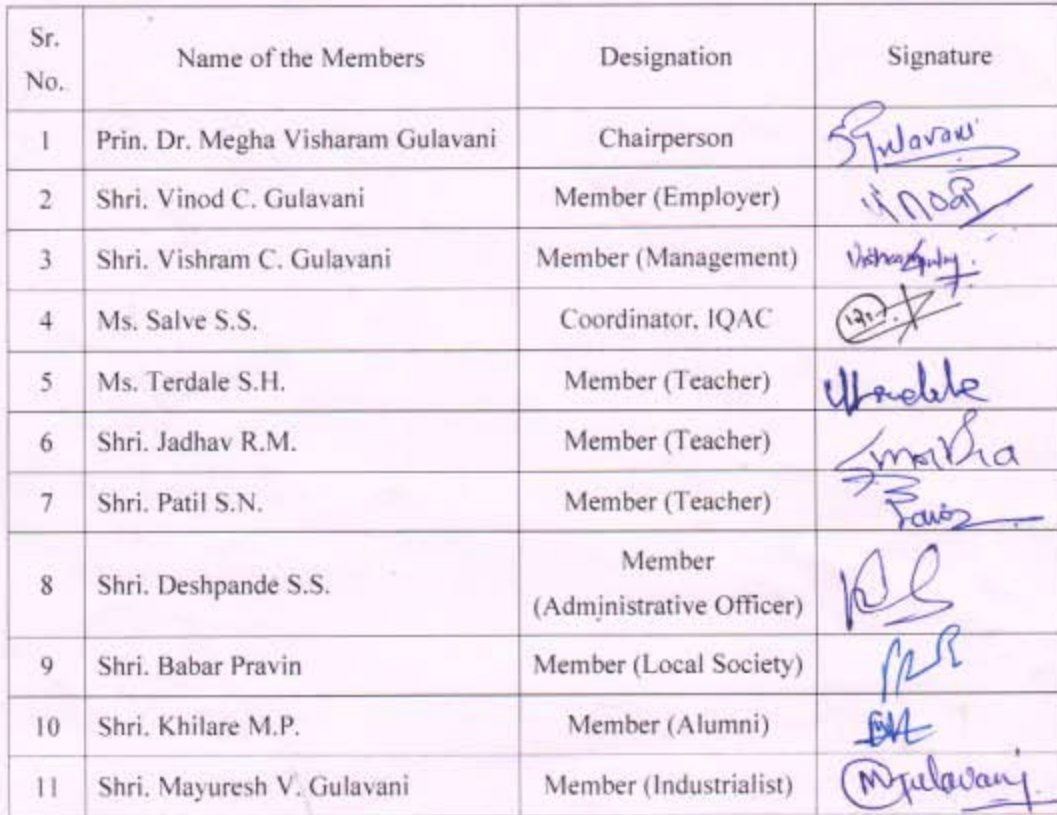 Sr. No. Name of the Members Designation Signature
1 Prin. Dr. Megha Visharam Gulavani Chairperson Gulavani
2 Shri. Vinod C. Gulavani Member (Employer)
3 Shri. Vishram C. Gulavani Member (Management)
4 Ms. Salve S.S. Coordinator, IQAC
5 Ms. Terdale S.H. Member (Teacher)
6 Shri. Jadhav R.M. Member (Teacher)
7 Shri. Patil S.N. Member (Teacher)
8 Shri. Deshpande S.S. Member (Administrative Officer)
9 Shri. Babar Pravin Member (Local Society)
10 Shri. Khilare M.P. Member (Alumni)
11 Shri. Mayuresh V. Gulavani Member (Industrialist) MGulavani